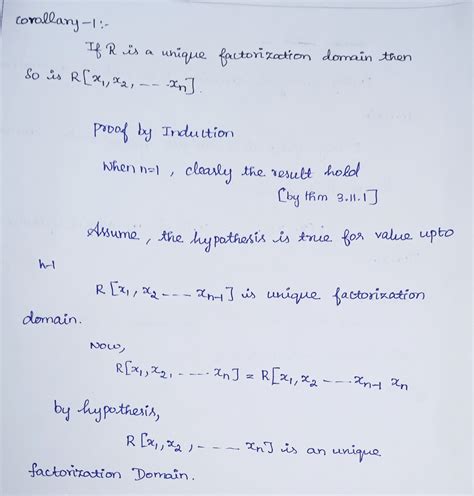 corollary-1:-
If R is a unique factorization domain then
so is R[x₁, x₂, --- xₙ].
proof by Induction
When n=1, clearly the result hold
[by thm 3.11.1]
Assume, the hypothesis is true for value upto
n-1
R[x₁, x₂ ---- xₙ₋₁] is unique factorization
domain.
Now,
R[x₁, x₂, ---- xₙ] = R[x₁, x₂ ---- xₙ₋₁ xₙ
by hypothesis,
R[x₁, x₂, ---- xₙ] is an unique
factorization Domain.